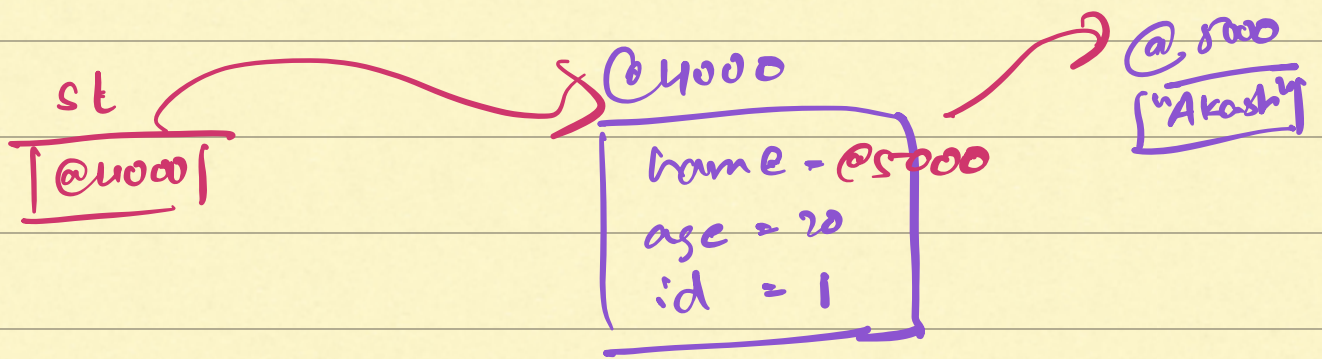 st
@4000
@4000
name - @5000
age = 20
id = 1
@ 5000
"Akash"